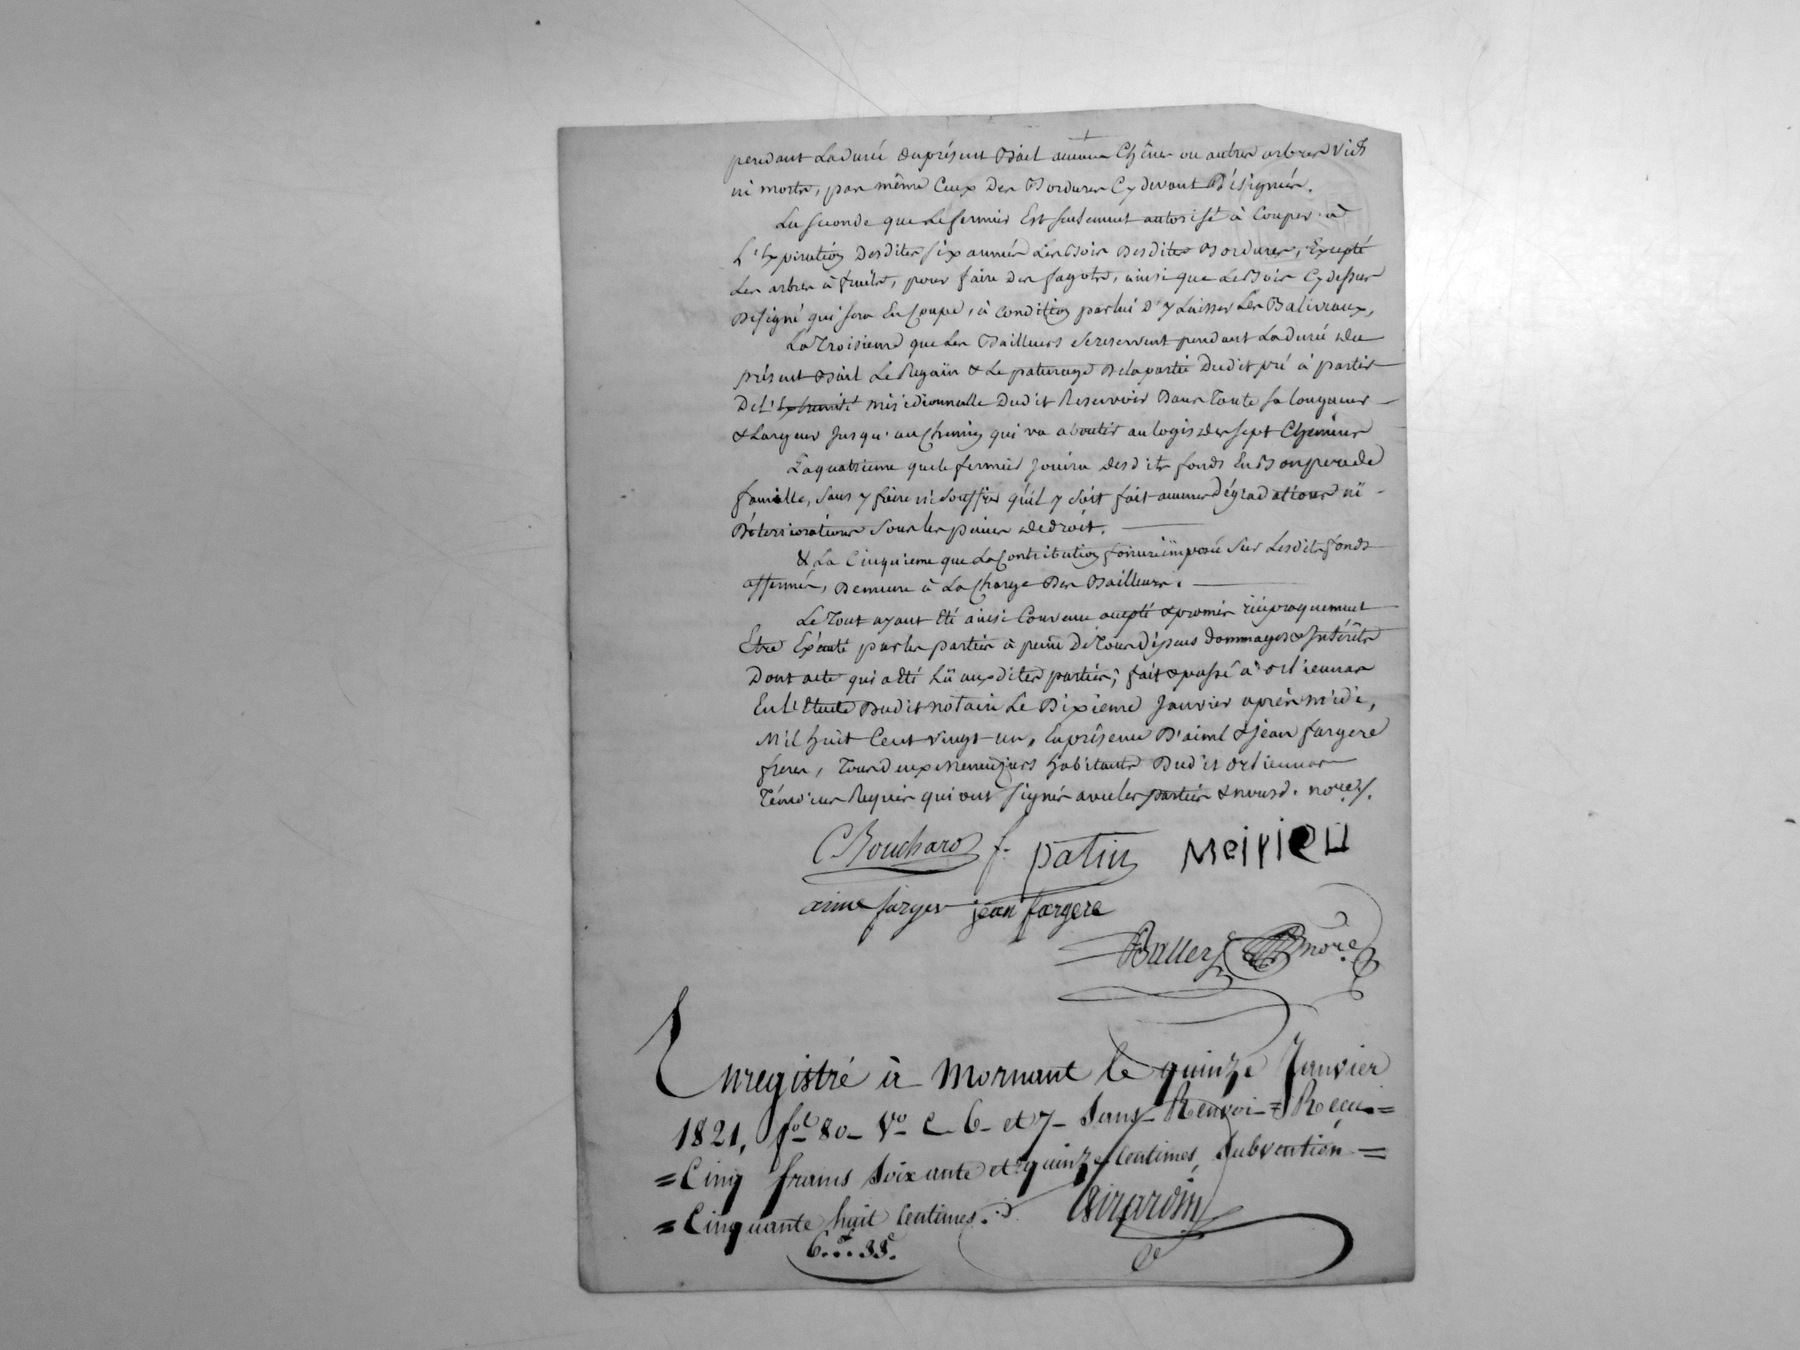 pendant la durée du présent Bail aucun Chêne ou autres arbres vifs
ni morts, pas même Ceux Des Bordures Cy devant Désignées.
La seconde que le fermier Est seulement autorisé à Couper à
L'Expiration Desdites six années Les Bois Desdites Bordures, Excepté
Les arbres à fruits, pour faire des fagots, ainsi que Le Bois Cy dessus
Désigné qui sera En Coupe, à condition par lui D'y Laisser Les Baliveaux,
La Troisieme que Les Bailleurs se reservent pendant La durée du
présent Bail Le Regain & Le paturage De la partie Dudit pré à partir
De L'Extremité méridionnalle Dudit Reservoir Dans Toute sa longueur
& Largeur Jusqu'au Chemin qui va aboutir au logis des sept Chemins
La quatrieme que le fermier Jouira desdits fonds En Bon pere de
famille, sans y faire ni souffrir qu'il y soit fait aucunes dégradations ni
Déteriorations sous les peines de droit.
& La Cinquieme que La Contribution fonciere imposée sur Lesdits fonds
affermés, Demeure à La Charge Des Bailleurs.
Le Tout ayant Eté ainsi Convenu accepté & promis réciproquement
Etre Exécuté par les parties à peine De Tous Dépens dommages & Intérêts
Dont acte qui a été Lû auxdites parties; fait & passé à orlienas
En L'Etude Dudit notaire Le Dixieme Janvier après midi,
Mil huit Cent vingt un, En présence D'aimé & jean fargere
freres, Tous deux habitants Dudit orlienas
Témoins Requis qui ont signés avec les parties & nousd. nore.
C. Bouchard f. patin Meirieu
aime farger jean fargere
Ballez nore
Enregistré à Mornant le quinze Janvier
1821, fol 80 Vo C 6 et 7 Sans Renvoi = Reçu =
= Cinq francs Soixante et quinze Centimes, Subvention =
= Cinquante huit Centimes. Girardin
6f..33c.